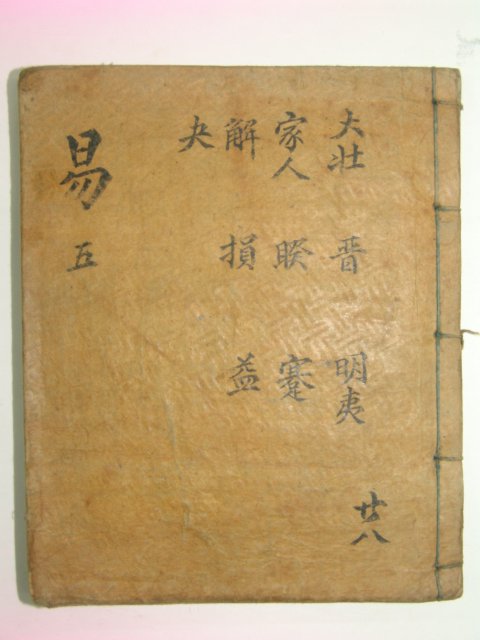 大壯 晋 明夷
家人 睽 蹇
解 損 益
夬
易 五
廿八